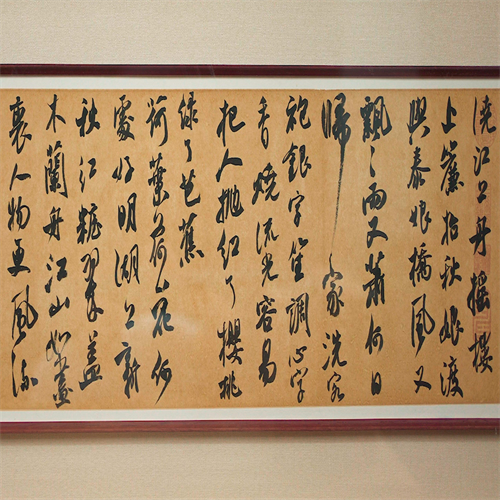 澆江上舟搖樓
上簾招秋娘渡
與泰娘橋風又
飄〻雨又蕭何日
歸家洗客
袍銀字笙調心字
香燒流光容易
把人拋紅了櫻桃
綠了芭蕉
荷葉荷花何
處好明湖上新
秋紅粧翠蓋
木蘭舟江山如畫
裏人物更風流